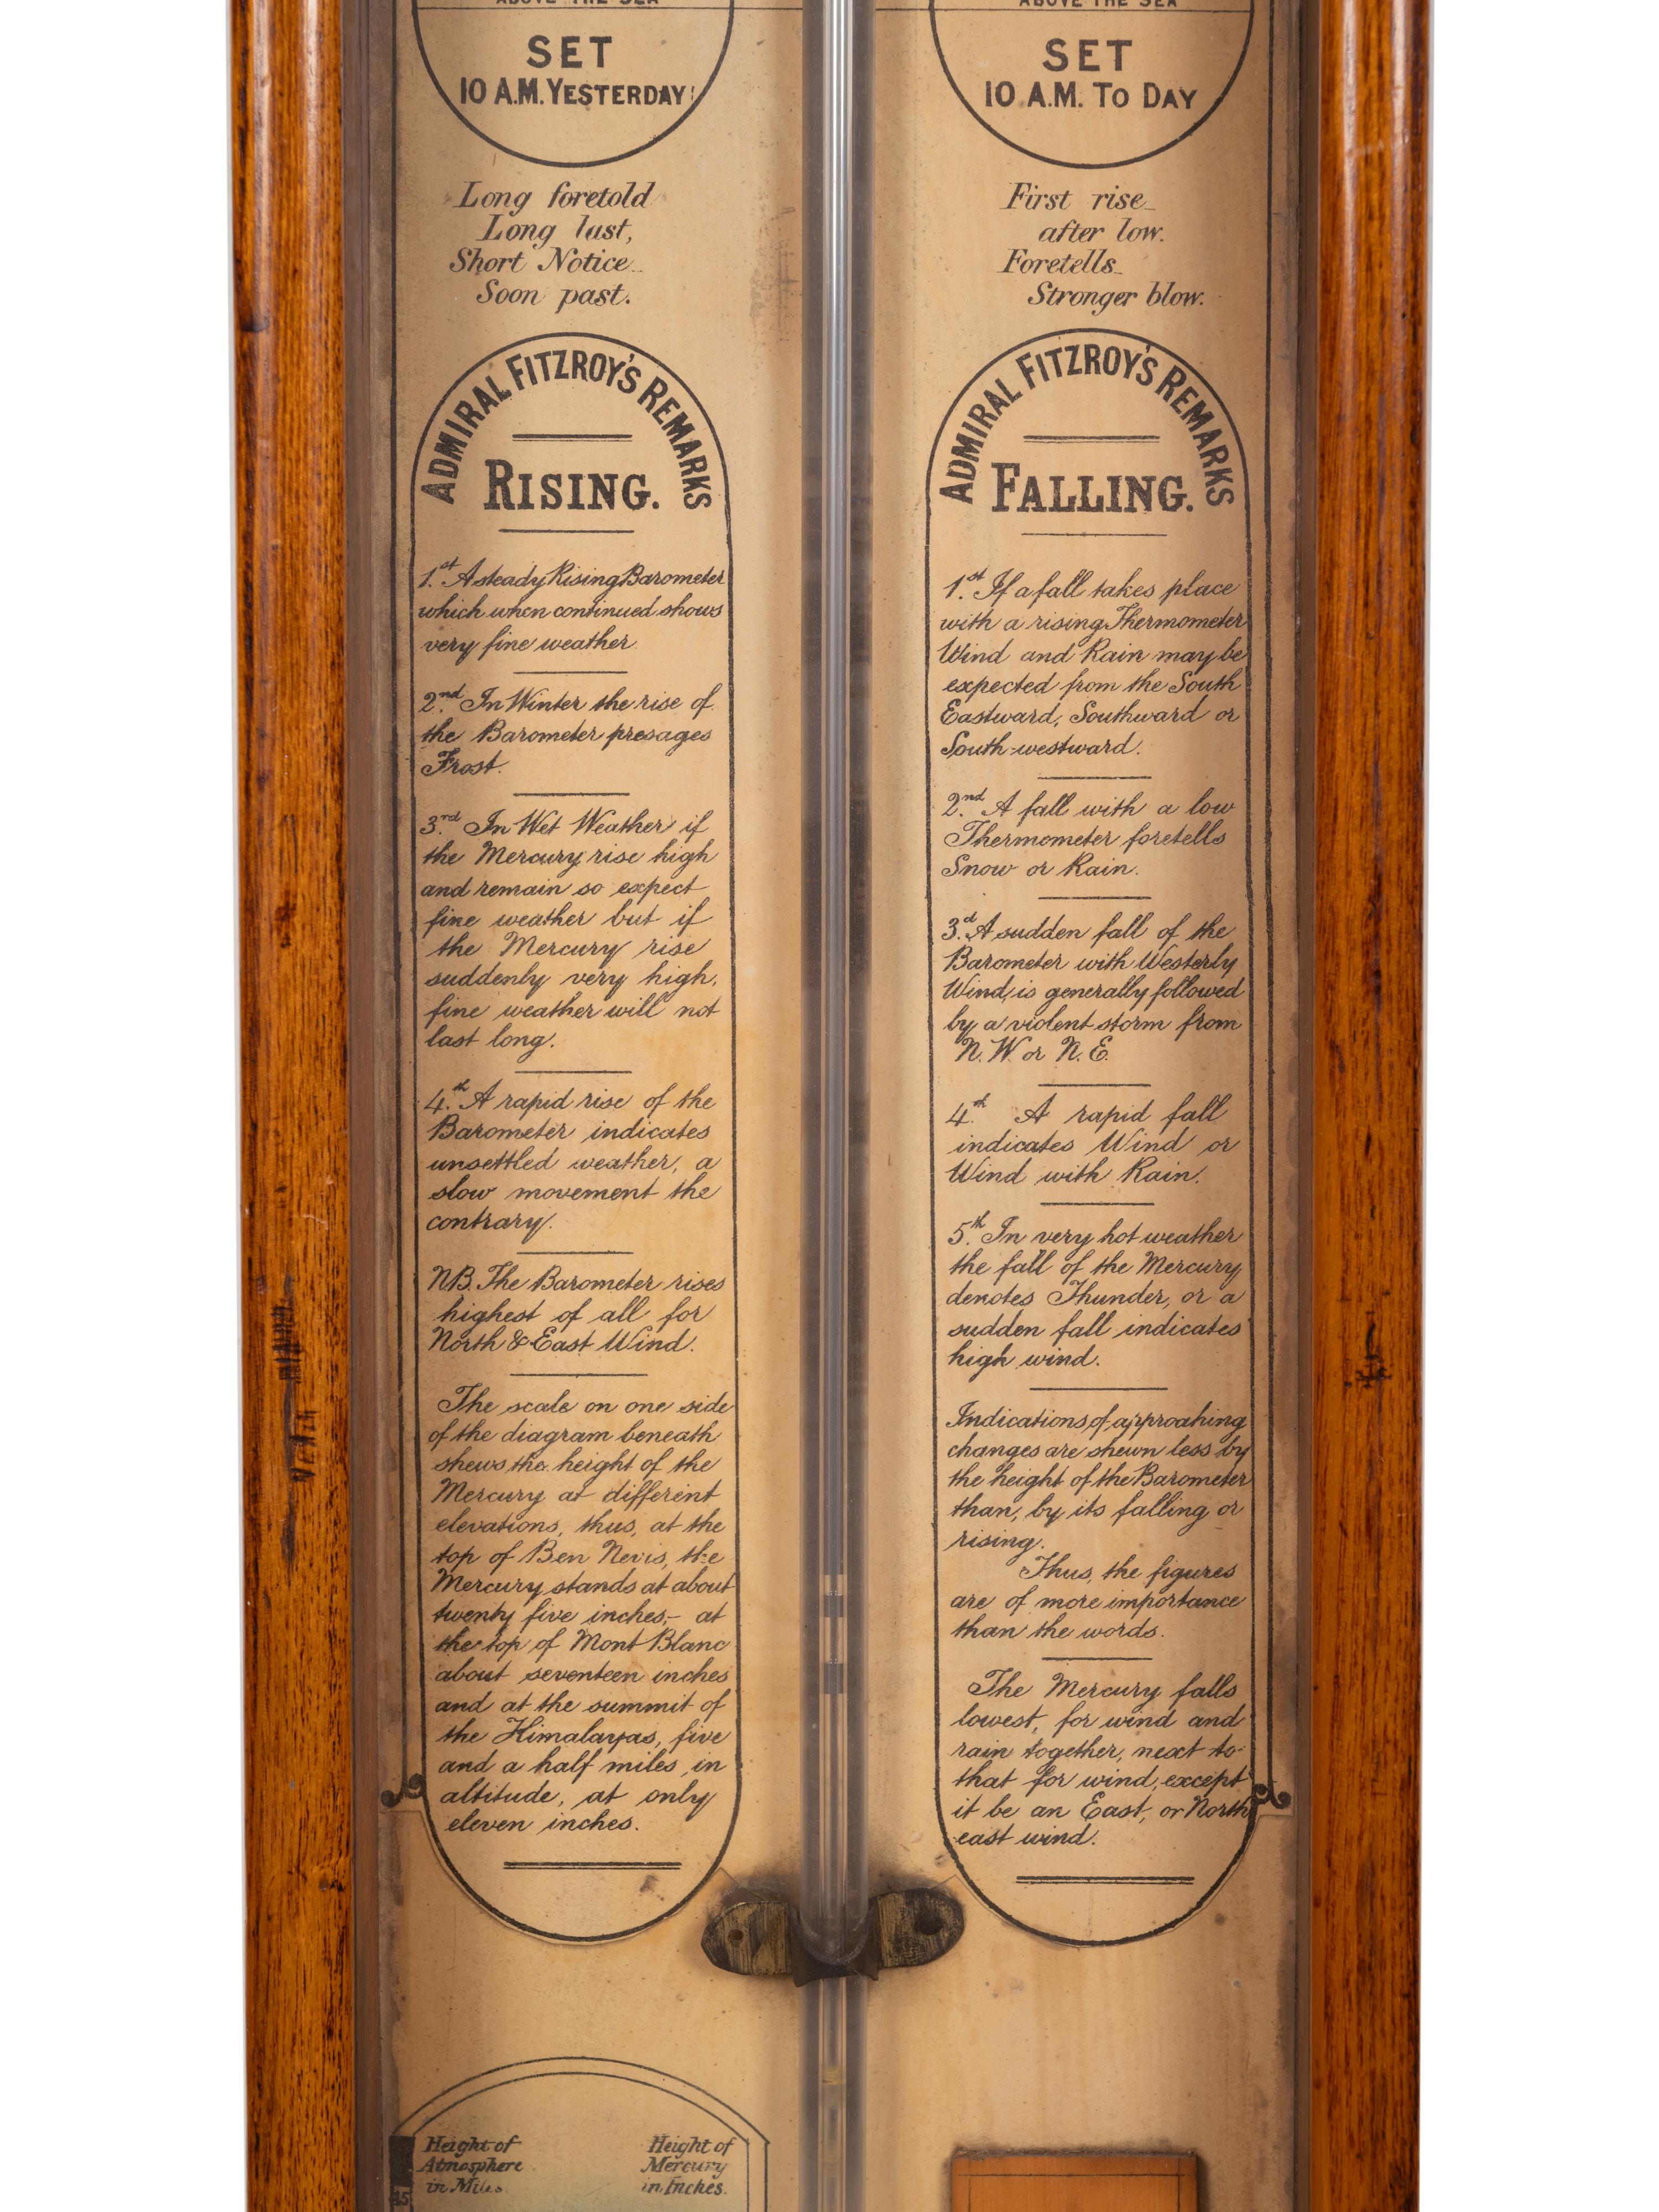 ABOVE THE SEA
SET
10 A.M. YESTERDAY
Long foretold
Long last,
Short Notice
Soon past.
ADMIRAL FITZROY'S REMARKS
RISING.
1.st A steady Rising Barometer
which when continued shows
very fine weather
2.nd In Winter the rise of
the Barometer presages
Frost.
3.rd In Wet Weather if
the Mercury rise high
and remain so expect
fine weather but if
the Mercury rise
suddenly very high,
fine weather will not
last long.
4.th A rapid rise of the
Barometer indicates
unsettled weather, a
slow movement the
contrary.
NB. The Barometer rises
highest of all for
North & East Wind.
The scale on one side
of the diagram beneath
shews the height of the
Mercury at different
elevations, thus, at the
top of Ben Nevis, the
Mercury stands at about
twenty five inches,- at
the top of Mont Blanc
about seventeen inches
and at the summit of
the Himalayas, five
and a half miles in
altitude, at only
eleven inches.
Height of
Atmosphere
in Miles
Height of
Mercury
in Inches.
15
ABOVE THE SEA
SET
10 A.M. TO DAY
First rise
after low.
Foretells
Stronger blow.
ADMIRAL FITZROY'S REMARKS
FALLING.
1.st If a fall takes place
with a rising Thermometer
Wind and Rain may be
expected from the South
Eastward, Southward or
South-westward.
2.nd A fall with a low
Thermometer foretells
Snow or Rain.
3.d A sudden fall of the
Barometer with Westerly
Wind, is generally followed
by a violent storm from
N.W. or N.E.
4.th A rapid fall
indicates Wind or
Wind with Rain.
5.th In very hot weather
the fall of the Mercury
denotes Thunder, or a
sudden fall indicates
high wind.
Indications of approahing
changes are shewn less by
the height of the Barometer
than, by its falling or
rising.
Thus, the figures
are of more importance
than the words.
The Mercury falls
lowest, for wind and
rain together, next to
that for wind, except
it be an East, or North
east wind.